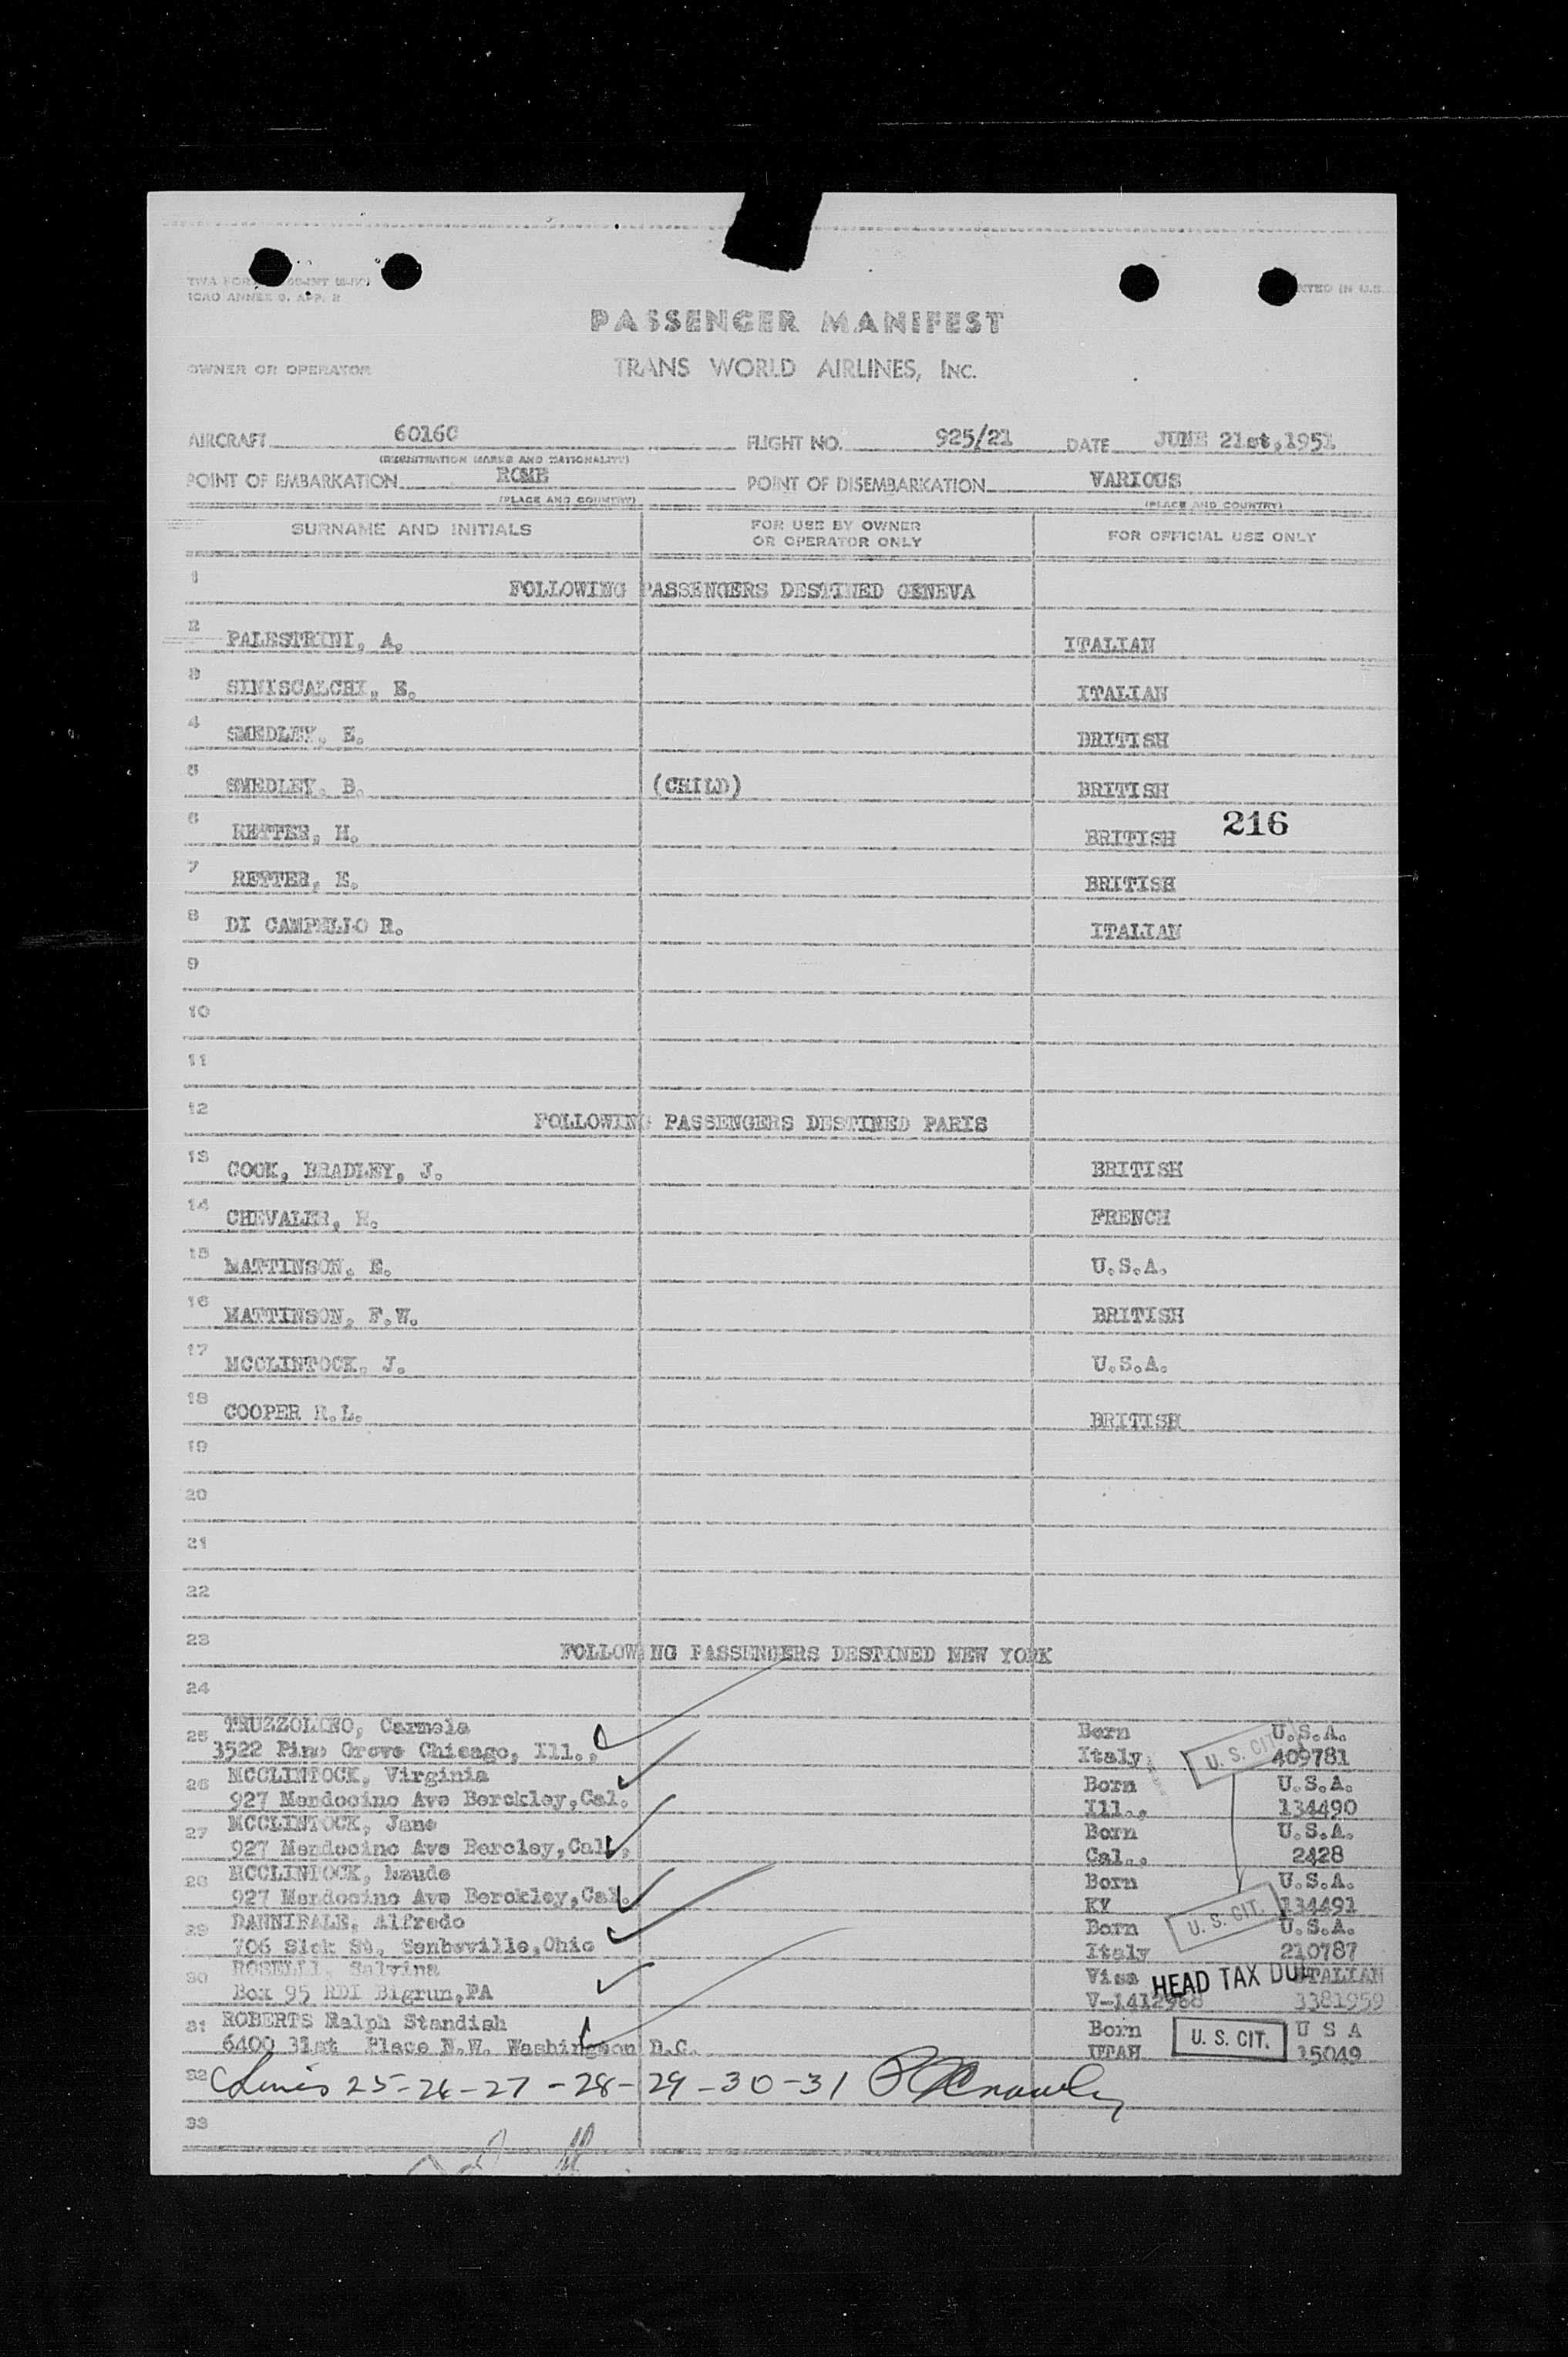 ICAO ANNEX 9, APP. 2
PASSENGER MANIFEST
OWNER OR OPERATOR
TRANS WORLD AIRLINES, INC.
AIRCRAFT 6016C FLIGHT NO. 925/21 DATE JUNE 21st,1951
(REGISTRATION MARKS AND NATIONALITY)
POINT OF EMBARKATION ROME POINT OF DISEMBARKATION VARIOUS
(PLACE AND COUNTRY) (PLACE AND COUNTRY)
SURNAME AND INITIALS FOR USE BY OWNER OR OPERATOR ONLY FOR OFFICIAL USE ONLY
1 FOLLOWING PASSENGERS DESTINED GENEVA
2 PALESTRINI, A. ITALIAN
3 SINISCALCHI, E. ITALIAN
4 SMEDLEY, E. BRITISH
5 SMEDLEY, B. (CHILD) BRITISH
216
6 H. BRITISH
7 RETTER, E. BRITISH
8 DI CAMPELLO R. ITALIAN
9
10
11
12 FOLLOWING PASSENGERS DESTINED PARIS
13 COOK, BRADLEY, J. BRITISH
14 CHEVALER, FRENCH
15 MATTINSON, E. U.S.A.
16 MATTINSON, F.W. BRITISH
17 MCCLINTOCK, J. U.S.A.
18 COOPER BRITISH
19
20
21
22
23 FOLLOWING PASSENGERS DESTINED NEW YORK
24
25 TRUZZOLINO, Carmela Born U.S.A.
3522 Pine Grove Chicago, Ill., Italy U. S. CIT. 409781
26 MCCLINTOCK, Virginia Born U.S.A.
927 Mendocino Ave Berckley,Cal. Ill., 134490
27 MCCLINTOCK, Jane Born U.S.A.
927 Mendocino Ave Bercley,Cal., Cal., 2428
28 MCCLINTOCK, Maude Born U.S.A.
927 Mendocino Ave Berckley,Cal. KY 134491
29 DANNIBALE, Alfredo Born U. S. CIT. U.S.A.
706 St, Ohio Italy 210787
30 ROSELLI, Salvina Visa HEAD TAX DUE ITALIAN
Box 95 RDI Bigrun,PA V-1412968 3381959
31 ROBERTS Ralph Standish Born U. S. CIT. U S A
6400 31st Place N.W. Washington D.C. UTAH 15049
32 Lines 25-26-27-28-29-30-31
33